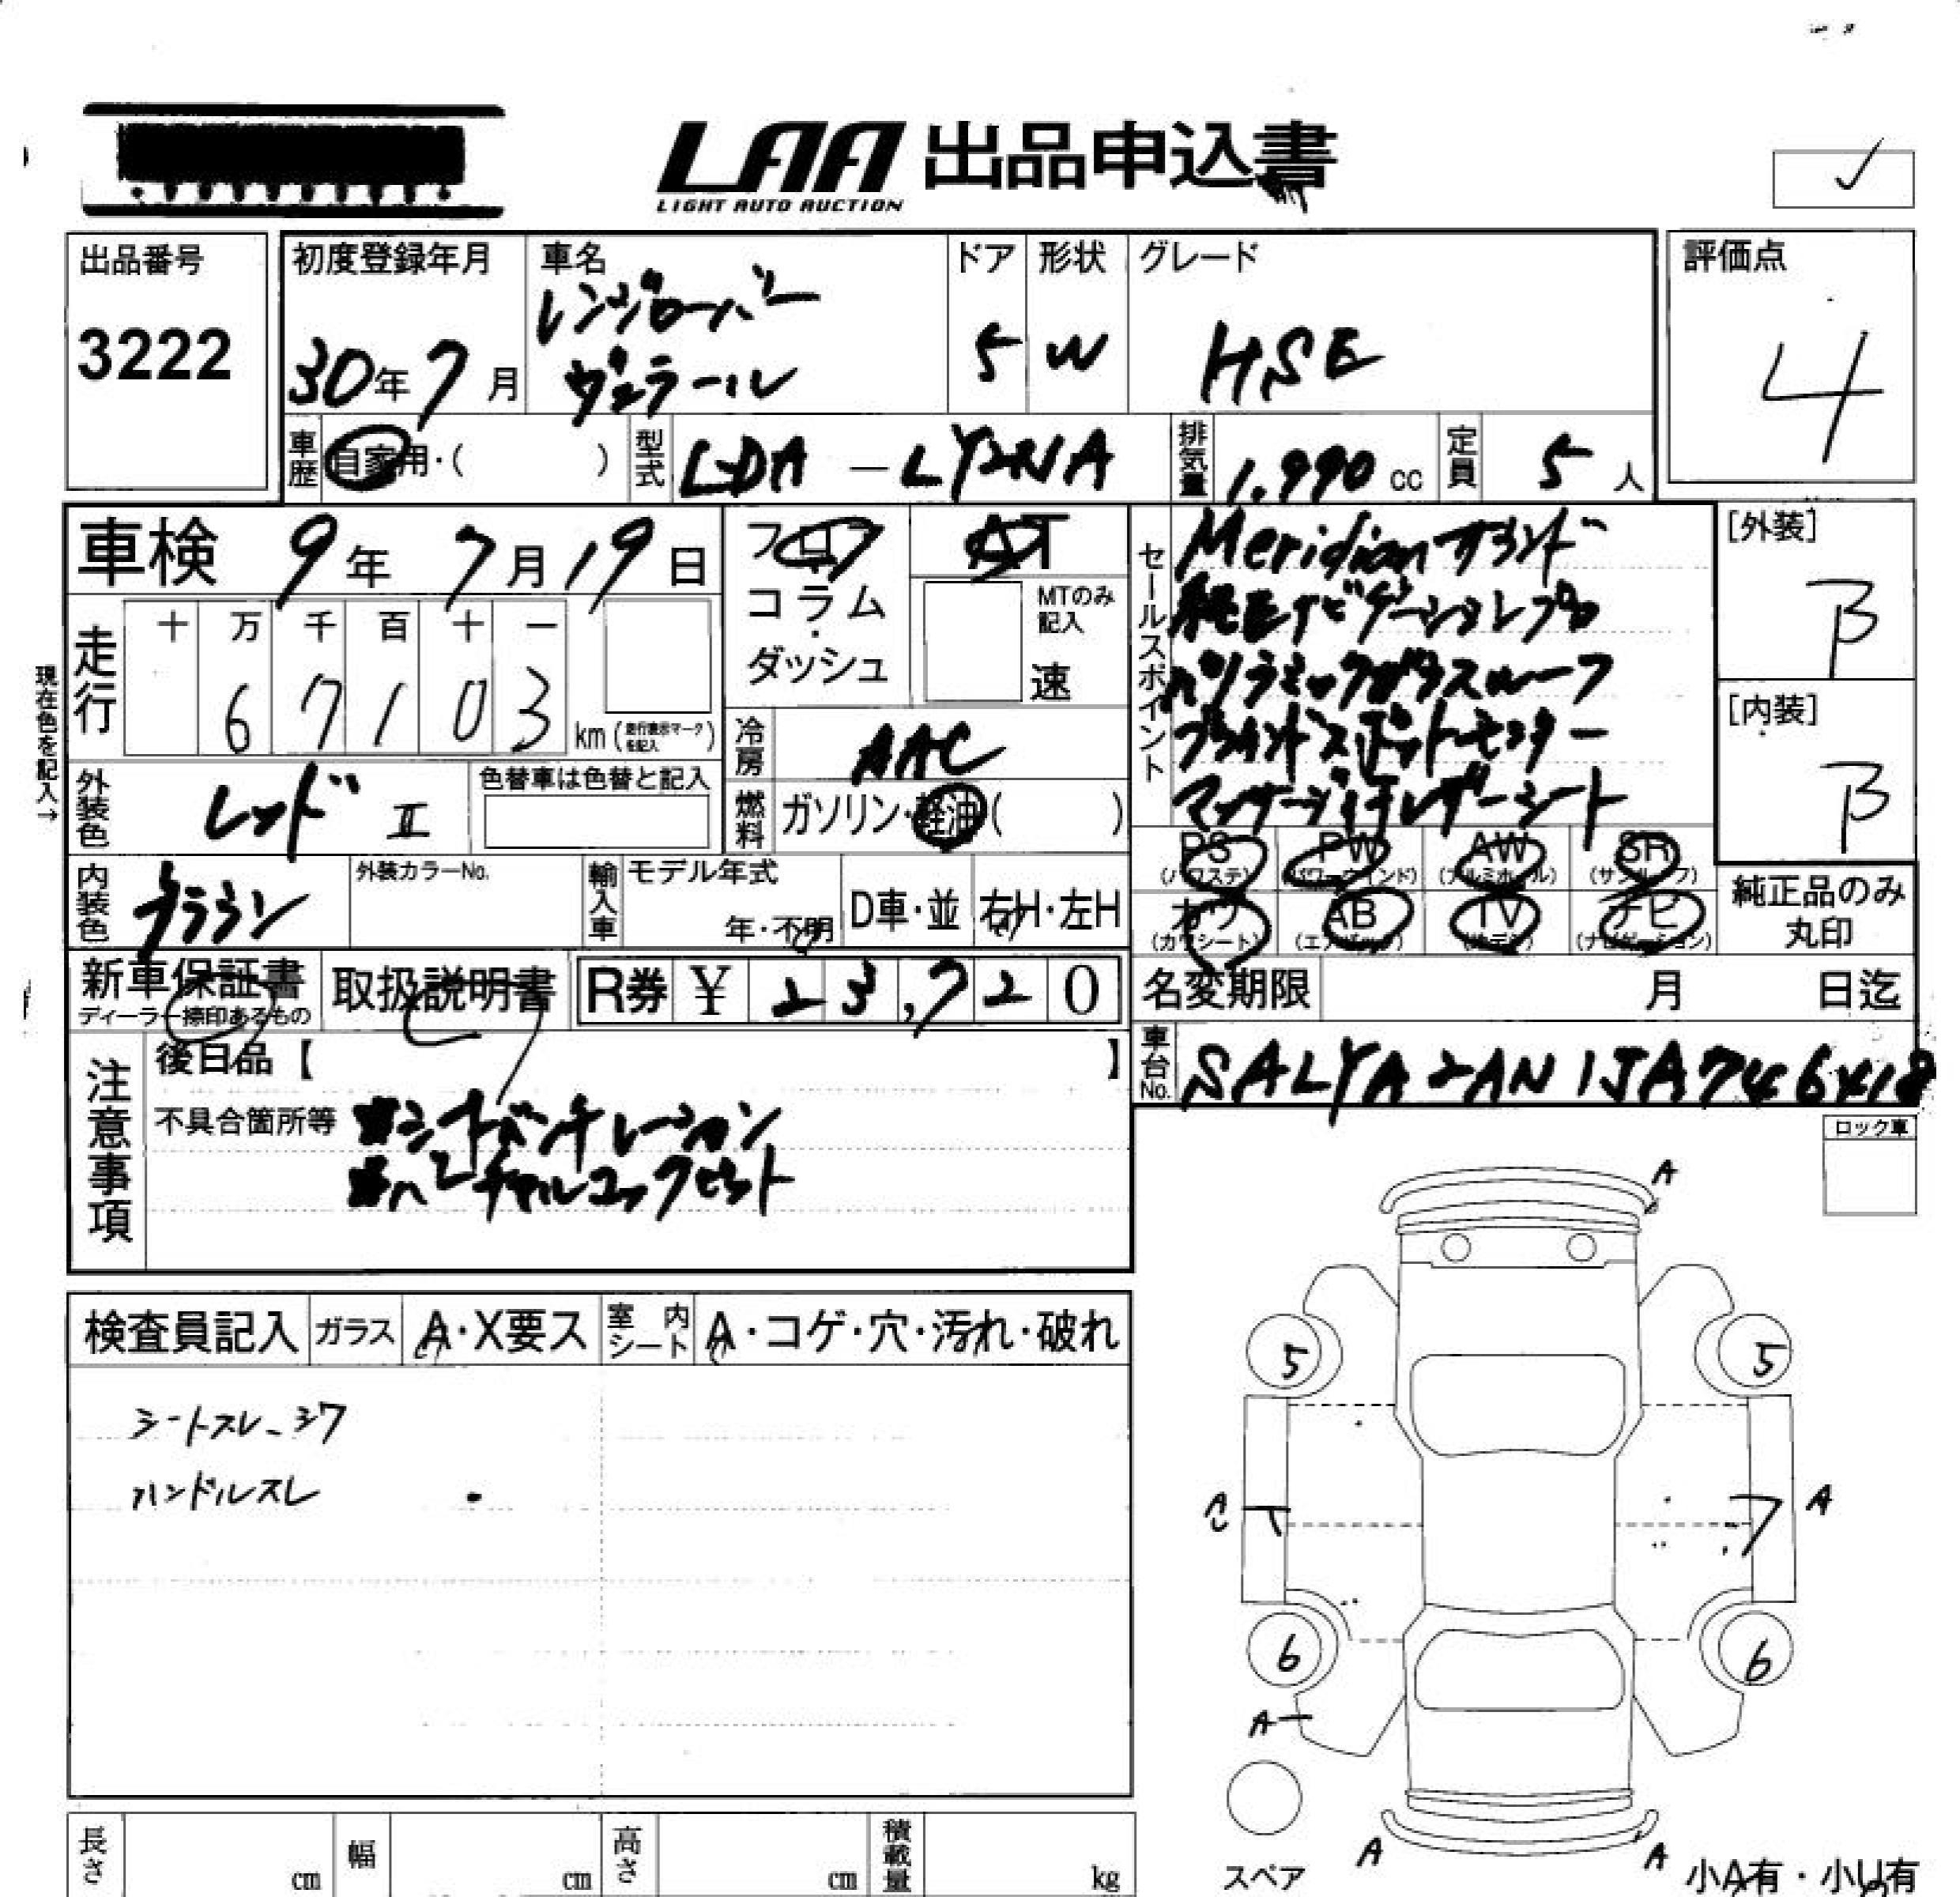 LAA 出品申込書
LIGHT AUTO AUCTION
出品番号
3222
初度登録年月
30年7月
車名
レンジローバー
ヴェラール
ドア
5
形状
W
グレード
HSE
評価点
4
車歴 自家用・( )
型式 LDA-LY2NA
排気量 1,990 cc
定員 5人
車検 9年7月19日
フロア
コラム
・
ダッシュ
AT
MTのみ
記入
速
セールスポイント
Meridianサウンド
純正ナビゲーションプロ
パノラミックガラスルーフ
ブラインドスポットモニター
マッサージ付レザーシート
[外装]
B
[内装]
B
現在色を記入→
走行
十 万 千 百 十 一
6 7 1 0 3
km (走行表示マークを記入)
冷房 AAC
燃料 ガソリン・軽油( )
外装色 レッド II
色替車は色替と記入
内装色
外装カラーNo.
輸入車
モデル年式
年・不明
D車・並
右H・左H
PS
(パワステ)
PW
(パワーウインド)
AW
(アルミホイール)
SR
(サンルーフ)
カワ
(カワシート)
AB
(エアバック)
TV
ナビ
(ナビゲーション)
純正品のみ
丸印
新車保証書
ディーラー捺印あるもの
取扱説明書
R券 ¥ 23,720
名変期限 月 日迄
車台No.
注意事項
後日品【 】
不具合箇所等
シートベンチレーション
ロック車
検査員記入
ガラス A・X要ス
室内シート A・コゲ・穴・汚れ・破れ
シートスレ、シワ
ハンドルスレ
A
5 5
A A
6 6
A
A A
スペア
小A有・小U有
長さ cm
幅 cm
高さ cm
積載量 kg